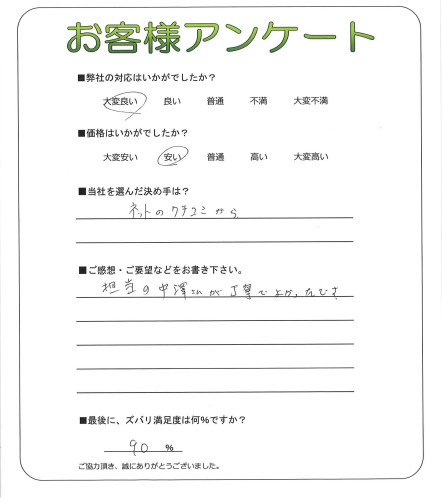 お客様アンケート
■弊社の対応はいかがでしたか?
大変良い 良い 普通 不満 大変不満
■価格はいかがでしたか?
大変安い 安い 普通 高い 大変高い
■当社を選んだ決め手は?
ネットのクチコミから
■ご感想・ご要望などをお書き下さい。
担当の中澤さんが丁寧でよかったです
■最後に、ズバリ満足度は何%ですか?
90 %
ご協力頂き、誠にありがとうございました。